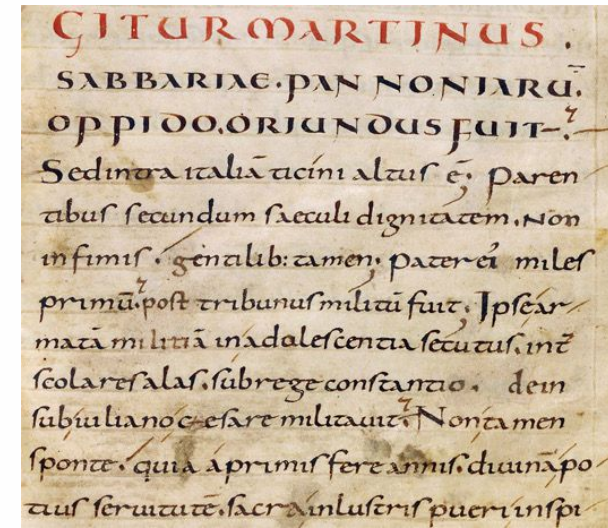 GITUR MARTINUS.
SABBARIAE. PANNONIARŪ.
OPPIDO. ORIUNDUS FUIT.
Sed intra italiā ticini altus ē; Paren
tibus secundum saeculi dignitatem. Non
infimis. gentilib: tamen; Pater eī miles
primū. post tribunus militū fuit; Ipse ar
matā militiā in adolescentia secutus. int̄
scolares alas. sub rege constantio. dein
sub iuliano caesare militauit. Non tamen
sponte. quia a primis fere annis. diuinā po
tius seruitutē. sacra inlustris pueri inspi